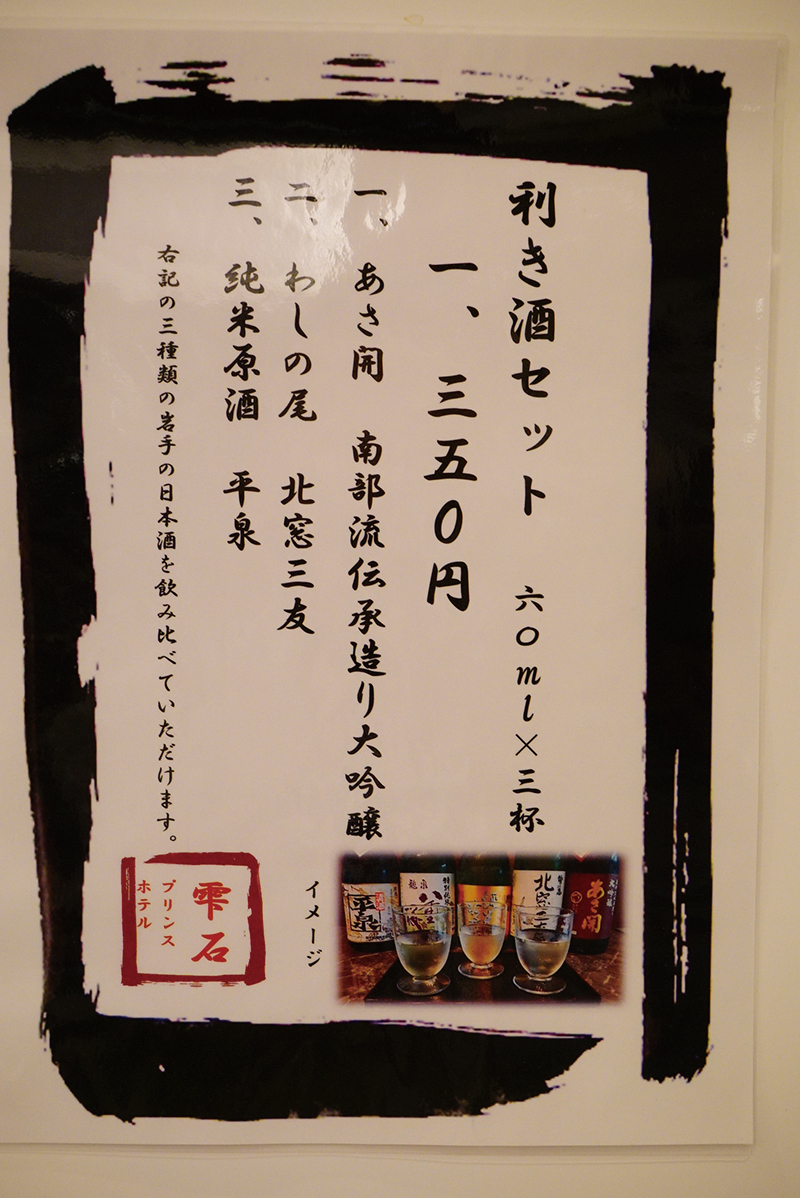 利き酒セット 六〇ml×三杯
一、三五〇円
一、あさ開 南部流伝承造り大吟醸
二、わしの尾 北窓三友
三、純米原酒 平泉
右記の三種類の岩手の日本酒を飲み比べていただけます。
イメージ
平泉
特別純米
龍泉
八重桜
北窓三友
あさ開
雫石
プリンス
ホテル